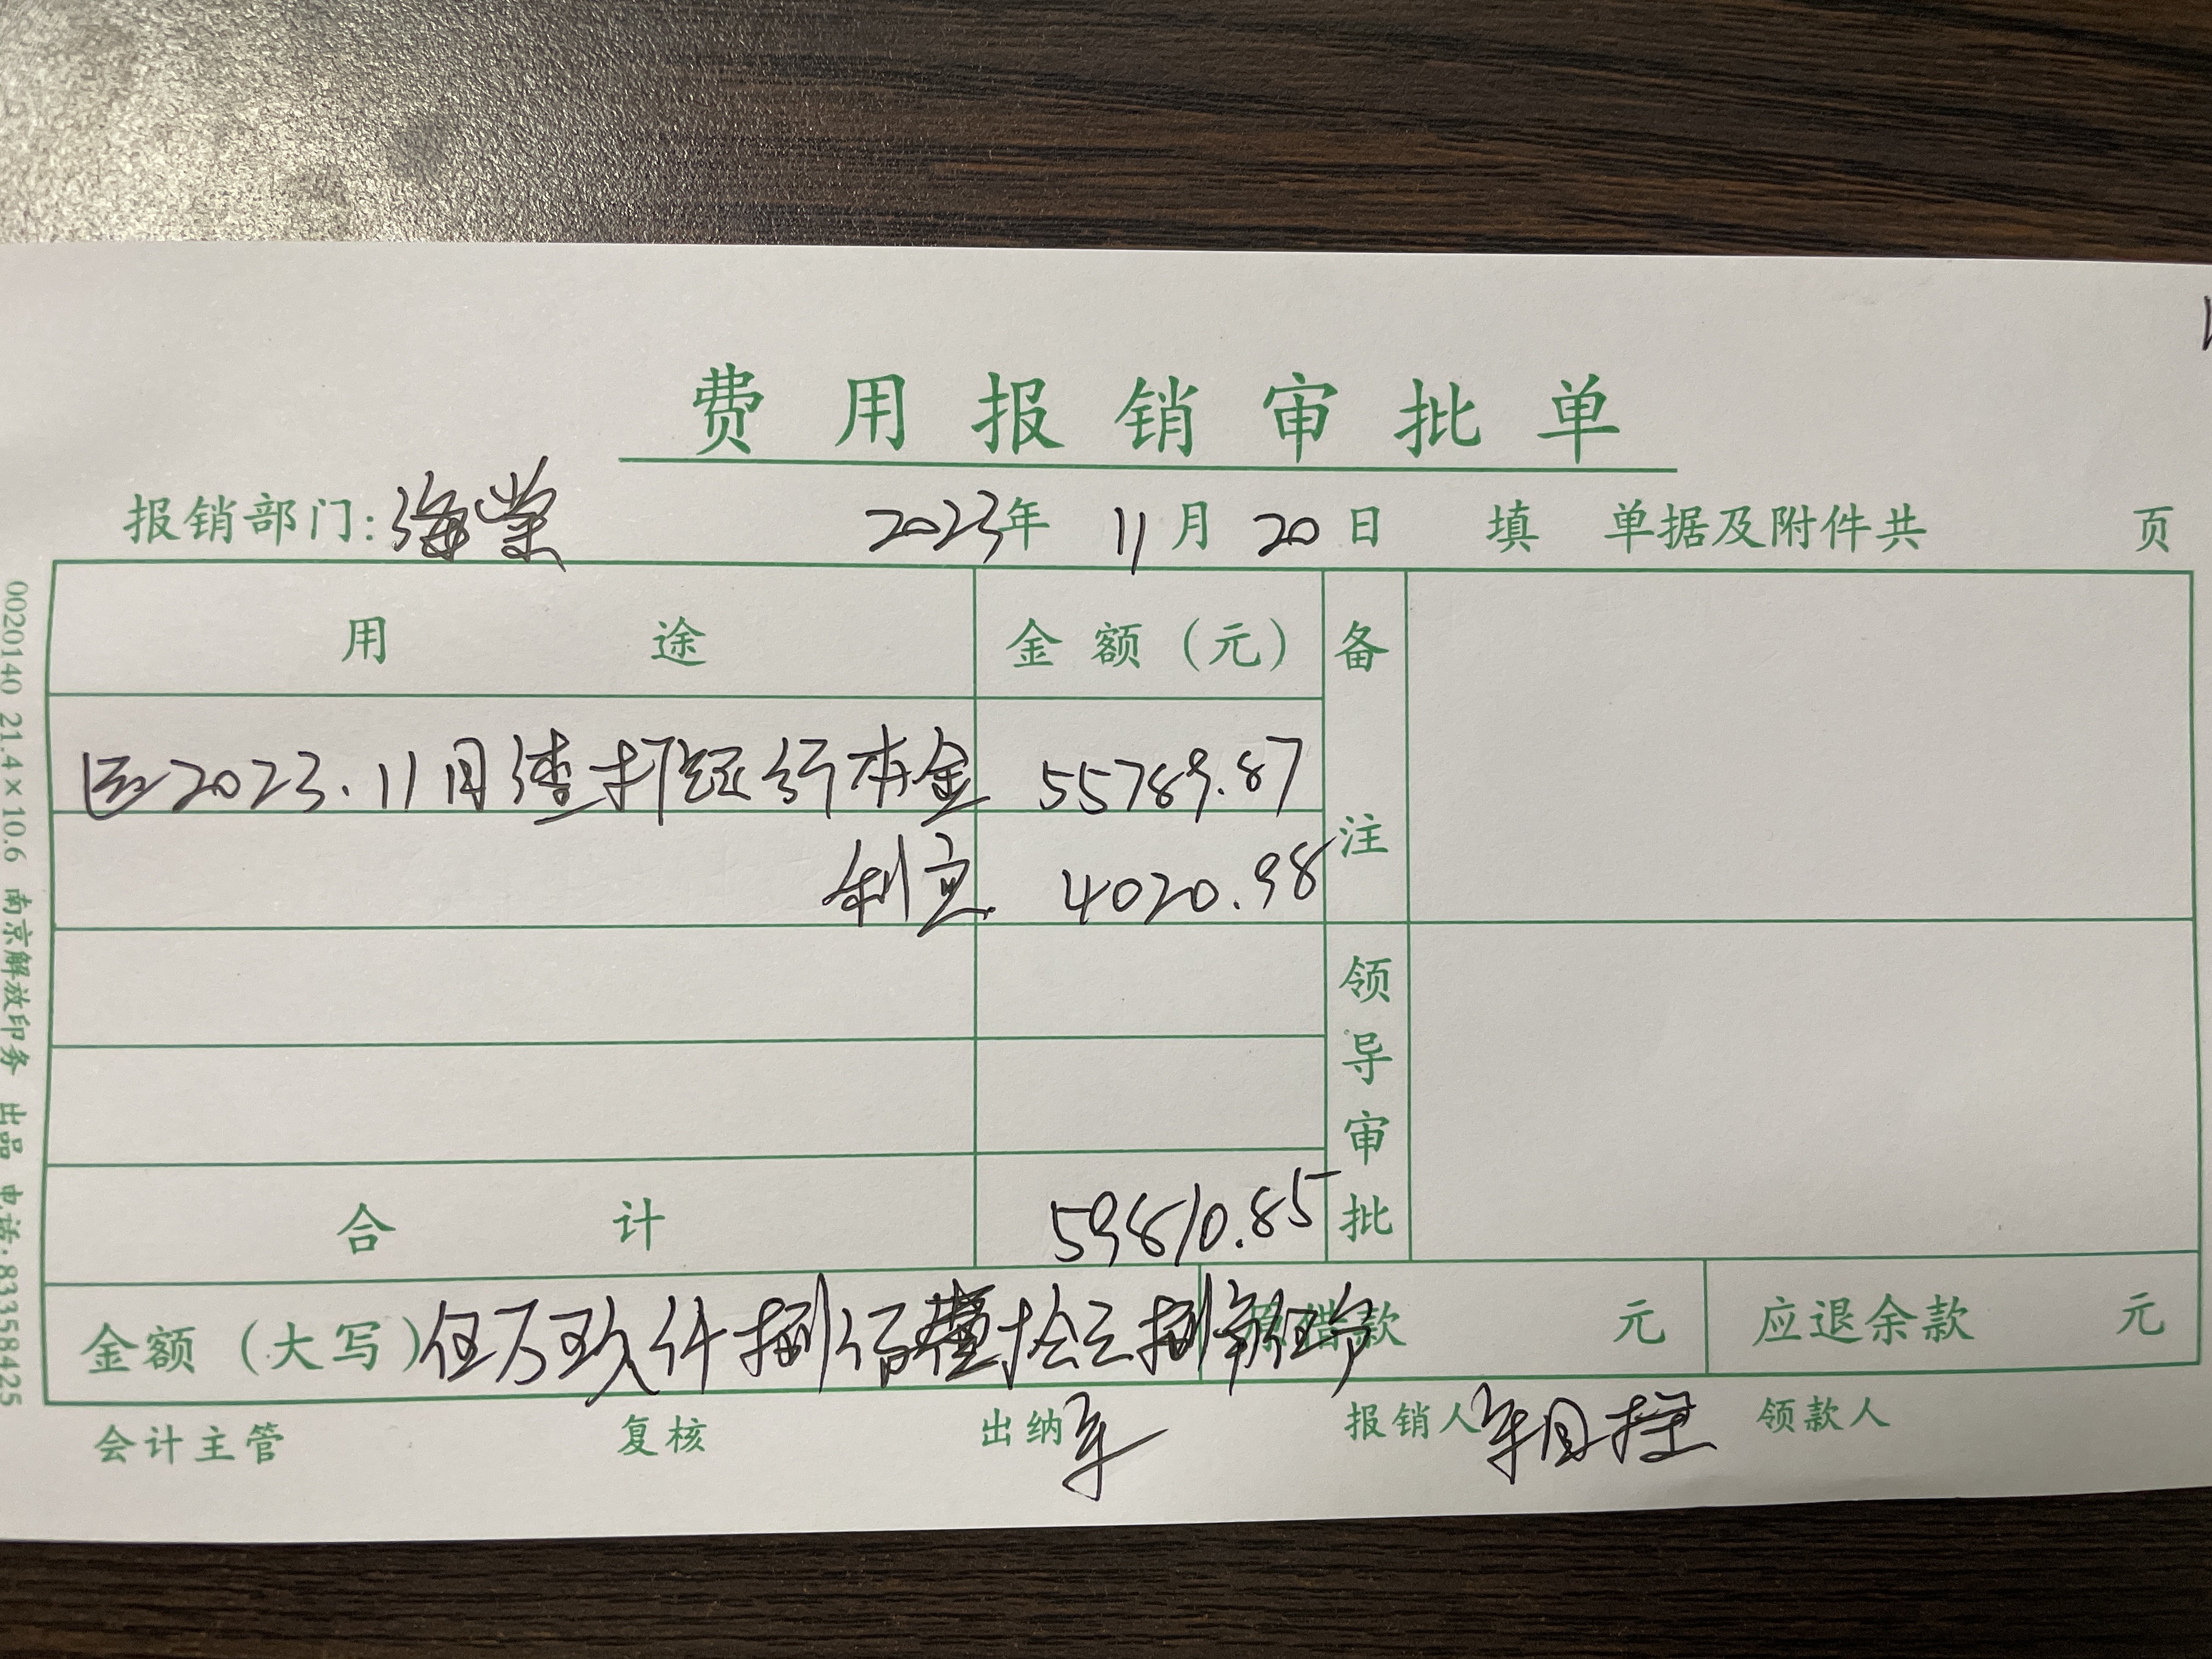 费用报销审批单
报销部门:海棠 2023年 11月 20日 填 单据及附件共 页
用途 金额(元) 备注
还2023.11月渣打银行本金 55789.87
利息 4020.98
领导审批
合计 59810.85
金额(大写)伍万玖仟捌佰壹拾元捌角伍分 原借款 元 应退余款 元
会计主管 复核 出纳 报销人 领款人
0020140 21.4×10.6 南京解放印务 出品 电话:83358425